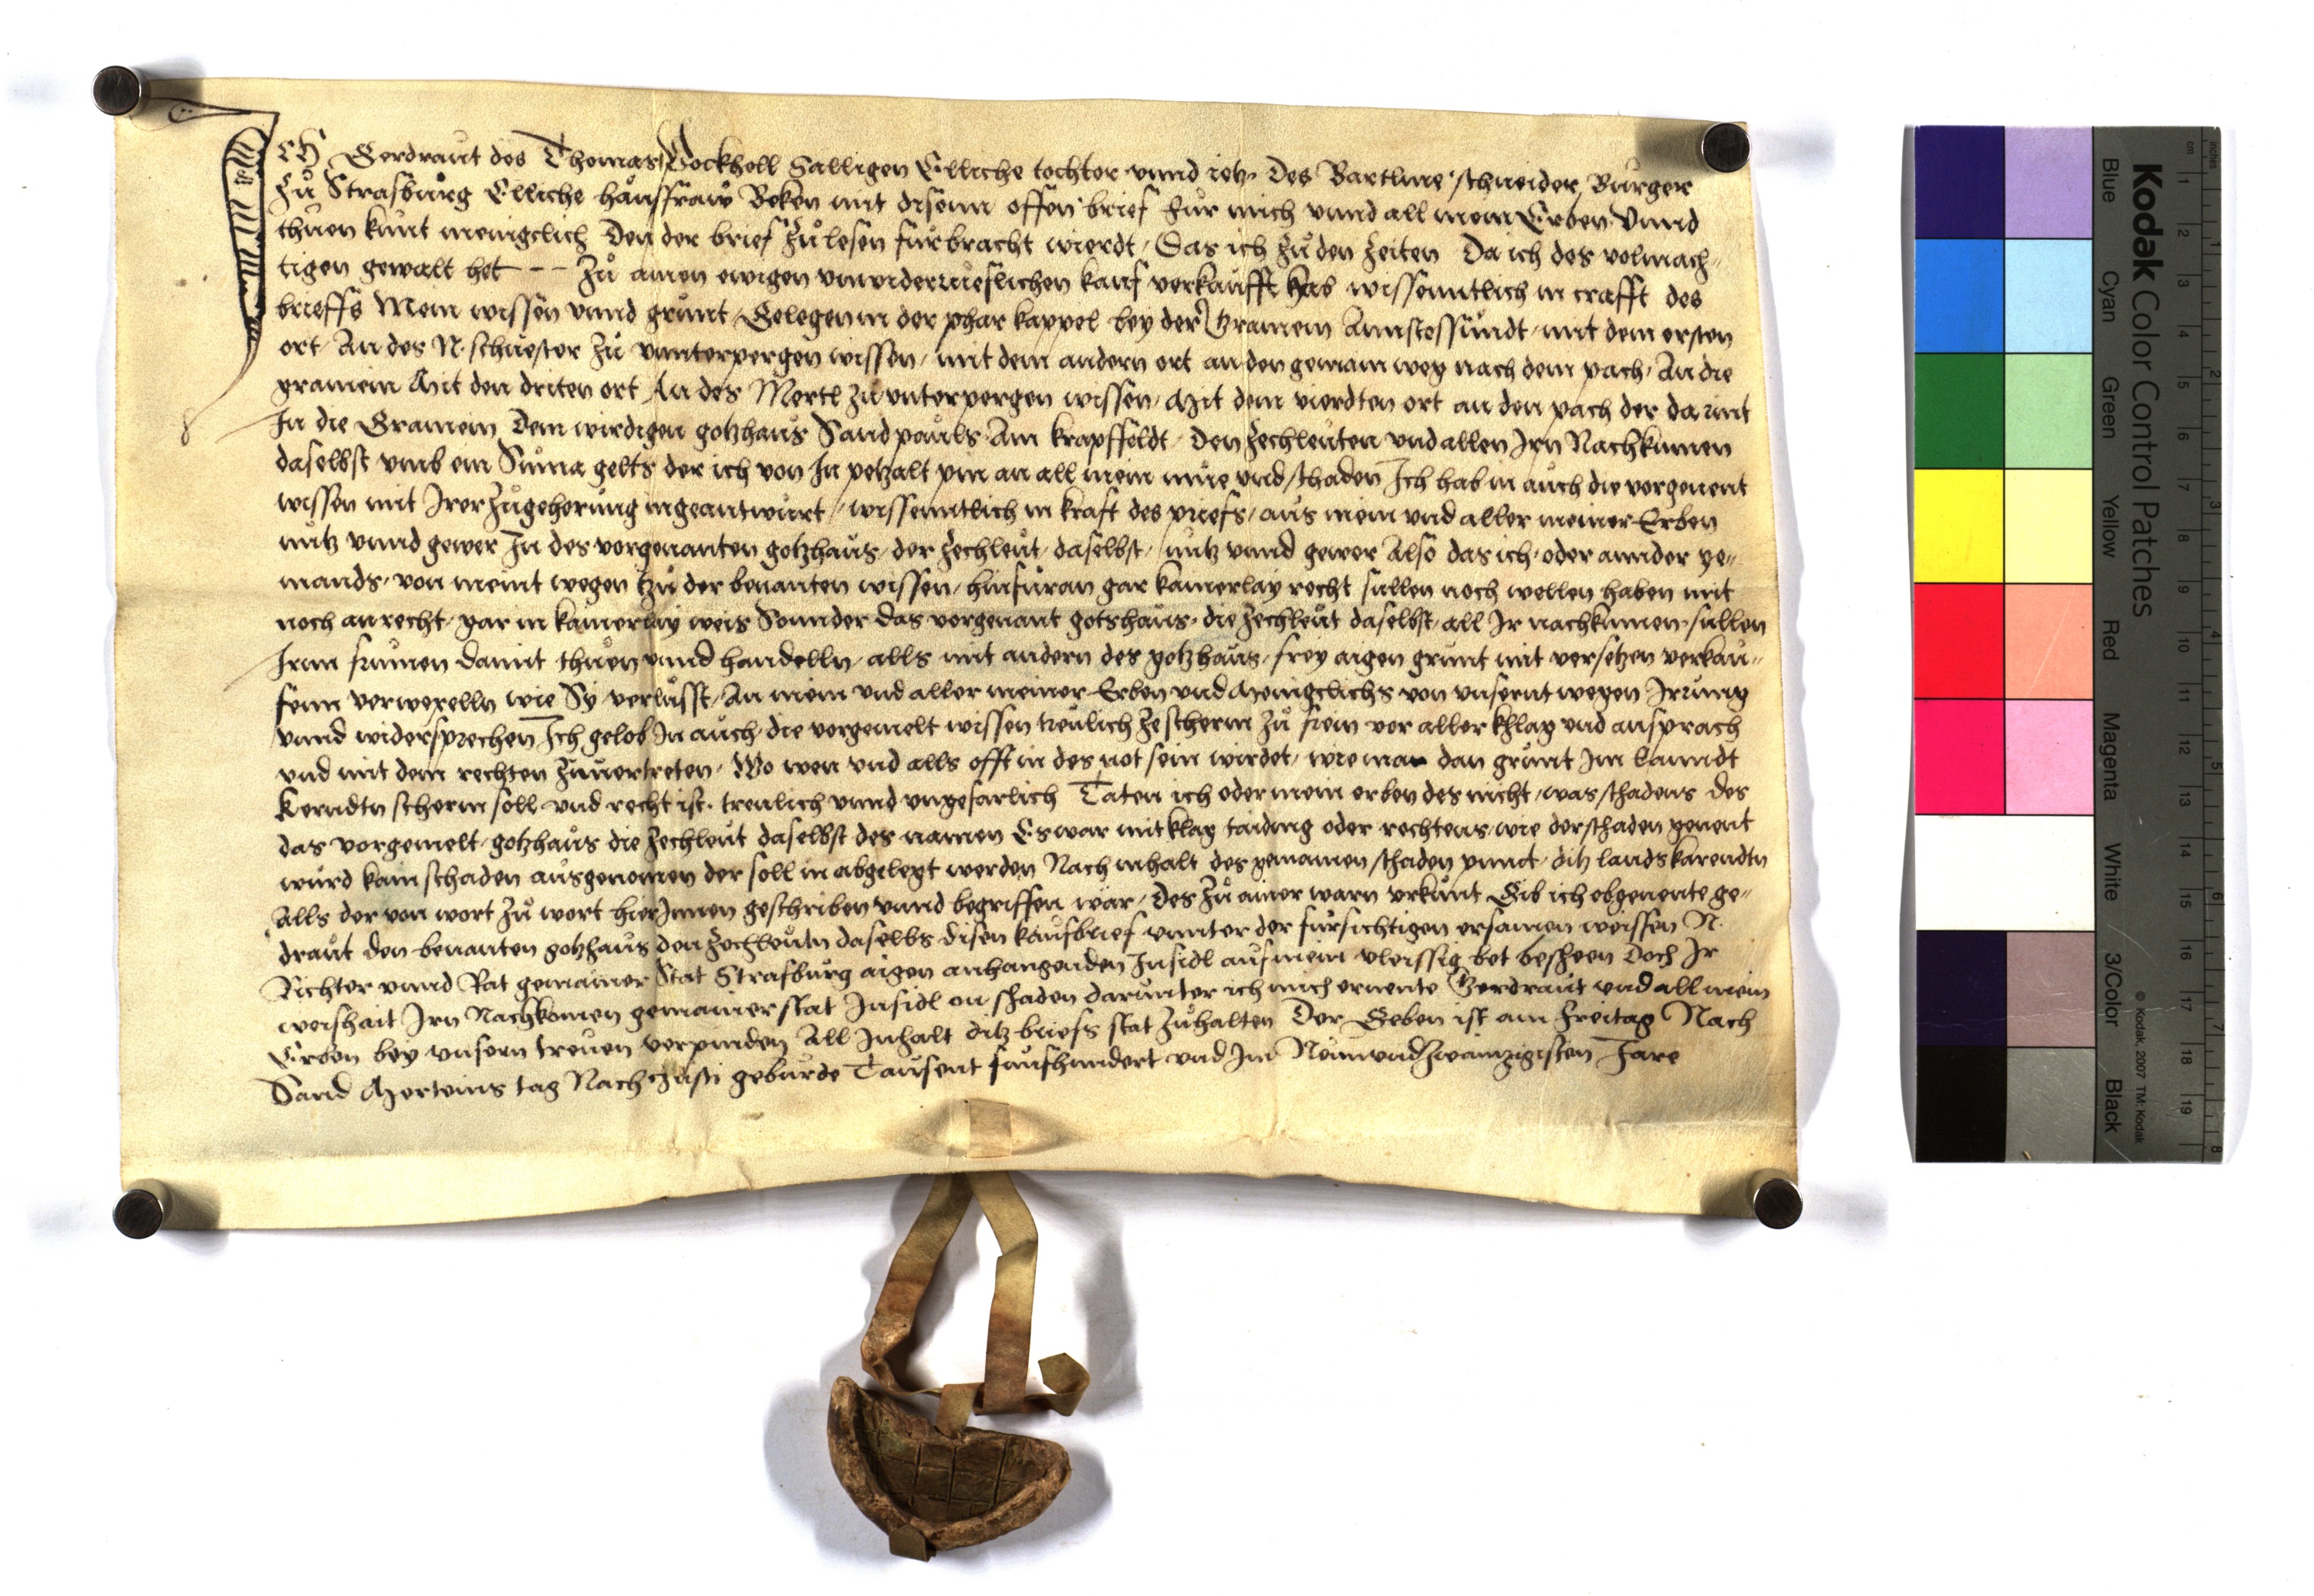 ICH Gerdraut des Thomas Pockholl Salligen Elliche tochter vnnd ietz des Bartlme schneider Burger
Zů Strasburg Elliche hausfraw Beken mit disem offen brief Für mich vnnd all mein Erben Vnnd
thuen kunt menigclich Den der brief zů lesen fürbracht wierdt Das ich zů den zeiten Da ich des volmach-
tigen gewalt het -- Zů ainen ewigen vnwiderrueflichen kauf verkaufft hab wissenntlich in crafft des
brieffs Mein wissen vnnd grunt Gelegen in der phar kappel bey der Gramein Annstossundt mit dem ersten
ort An des N. schuester zů vnnterpergen wissen mit dem andern ort an den gemain weg nach dem pach An die
gramein Mit den driten ort An des Mertl zů vnterpergen wissen Mit dem vierdten ort an den pach der da rint
In die Gramein Dem wirdigen gotzhaus Sand pauls Am krapffeldt Den zechleuten vnd allen Irn Nachkumen
daselbst vmb ein Suma gelts der ich von In petzalt pin an all mein mue vnd schaden Ich hab in auch die vorgenent
wissen mit Irer zůgehorung ingeantwurt wissenntlich in kraft des priefs aus mein vnd aller meiner Erben
nutz vnnd gewer In des vorgenanten gotzhaus der zechleut daselbst nutz vnnd gewer Also das ich oder annder ye-
mands von meint wegen tzů der benanten wissen hinfuran gar kainerlay recht sullen noch wellen haben mit
noch an recht gar in kainerlay weis Sonnder das vorgenant gotshaus die zechleut daselbst all Ir nachkumen sullen
Irnn frumen damit thuen vnnd handelln alls mit andern des gotzhaus frey aigen grunt mit versetzen verkau-
fenn verwexelln wie Sy verlusst An mein vnd aller meiner Erben vnd Menigclichs von vnsernt wegen Irrung
vnnd widersprechen Ich gelob In auch die vorgemelt wissen treulich zescherm zů frein vor aller khlag vnd ansprach
vnd mit dem rechten zuuertreten Wo wen vnd alls offt in des not sein wirdet wie man dan grunt Im lanndt
Kerndtn scherm soll vnd recht ist treulich vnnd vngefarlich Taten ich oder mein erben des nicht was schadens des
das vorgemelt gotzhaus die zechleut daselbst des namen Es war mit klag taiding oder rechtens wie der schaden genent
wurd kain schaden ausgenomen der soll in abgelegt werden Nach inhalt des gemainen schaden punt ditz lands karendtn
Alls der von wort zů wort hierInnen geschriben vnnd begriffen wär Des zů ainer warn vrkunt Gib ich obgenente ge-
draut den benanten gotzhaus den zechleutn daselbs disen kaufbrief vnnter der fursichtigen ersamen weissen N.
Richter vnnd Rat gemainer Stat Strasburg aigen anhangenden Insidl auf mein vleissig bet besheen Doch Ir
weishait Irn Nachkomen gemainer stat Insidl on schaden darunter ich mich ernente Gerdraut vnd all mein
Erben bey vnsern treuen verpinden All Inhalt ditz briefs stat zůhalten Der Geben ist am Freitag Nach
Sand Merteins tag Nach Cristi geburde Tausent funfhundert vnd Im Neunvndzwainzigisten Jare
Kodak Color Control Patches
Blue Cyan Green Yellow Red Magenta White 3/Color Black
© Kodak, 2007 TM: Kodak
cm 1 2 3 4 5 6 7 8 9 10 11 12 13 14 15 16 17 18 19
inches 1 2 3 4 5 6 7 8